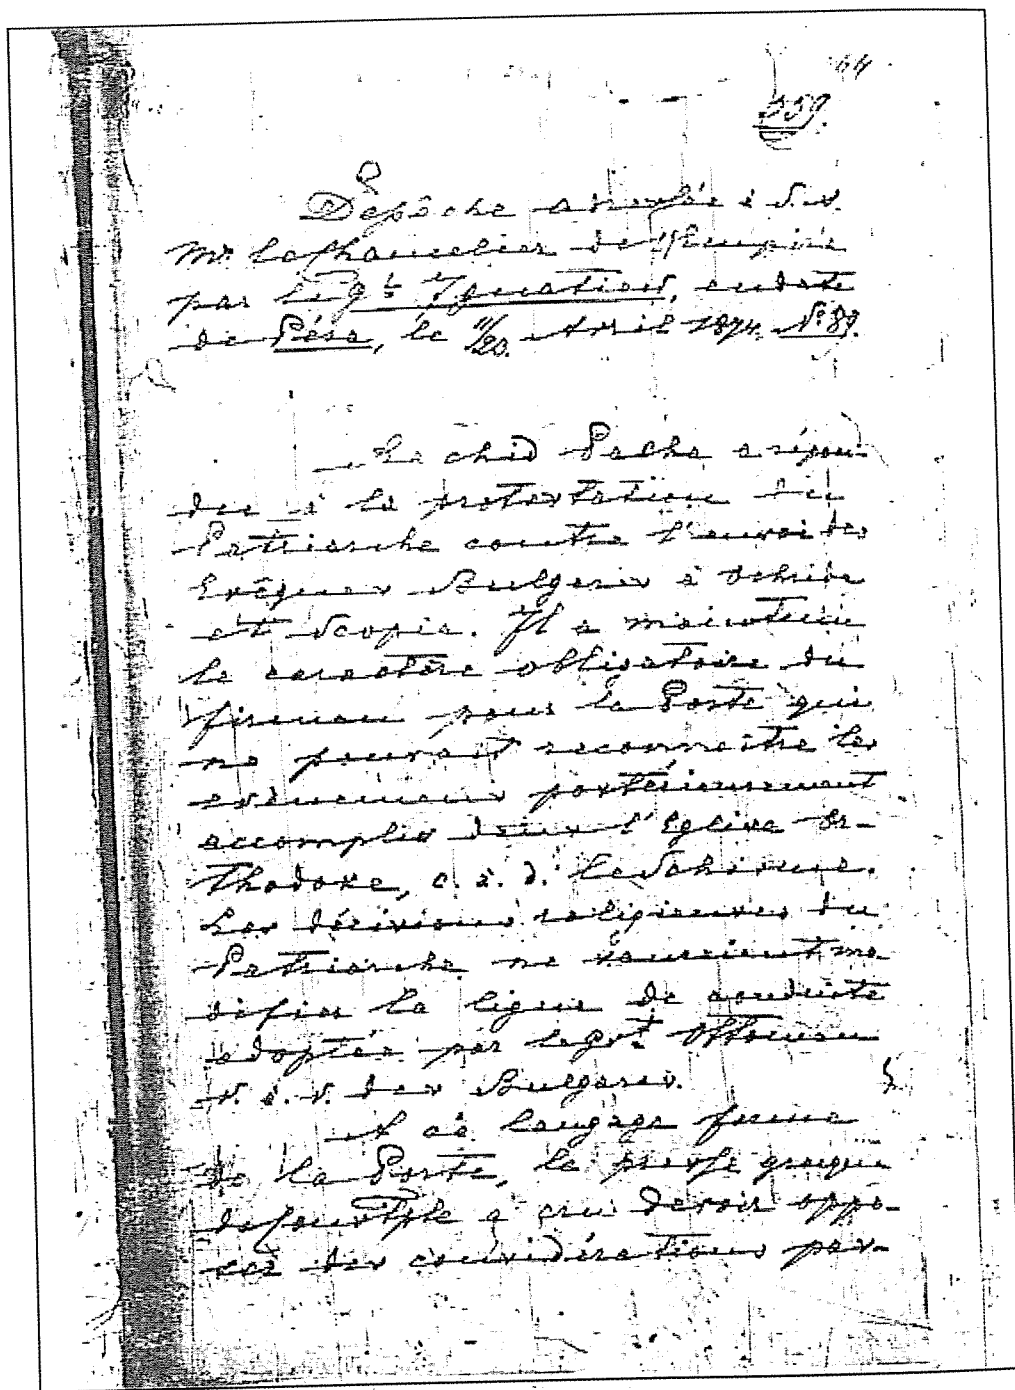 64
559.
Dépêche adressée à S. A.
Mr. le Chancelier de l'Empire
par le Gal Ignatiew, en date
de Péra, le 11/23. Avril 1874. No. 89.
Rachid Pacha a répon-
du à la protestation du
Patriarche contre l'envoi des
Evêques Bulgares à Ochrida
et Scopia. Il a maintenu
le caractère obligatoire du
firman pour la Porte qui
ne pouvait reconnaître les
evènemens postérieurement
accomplis dans l'Eglise Or-
thodoxe, c. à. d. le Schisme.
Les décisions religieuses du
Patriarche ne sauraient mo
difier la ligne de conduite
adoptée par le Gvt. Ottoman
v. à. v. des Bulgares.
A ce langage ferme
de la Porte, la presse grecque
de Constple a cru devoir oppo-
ser des considérations par-